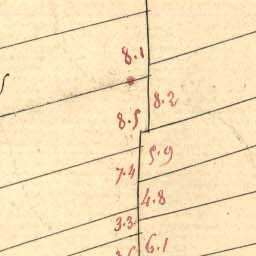 8.1
8.2
8.5
5.9
7.4
4.8
3.3
6.1